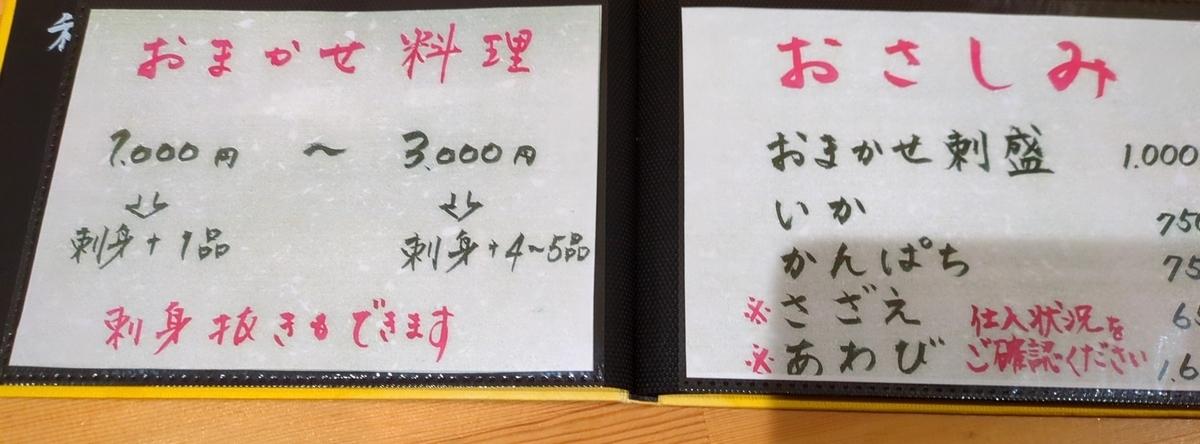 おまかせ料理
1.000円 ~ 3.000円
刺身+1品
刺身+4~5品
刺身抜きもできます
おさしみ
おまかせ刺盛 1.000
いか 750
かんぱち 75
※さざえ 6
※あわび 1.6
仕入状況を
ご確認ください